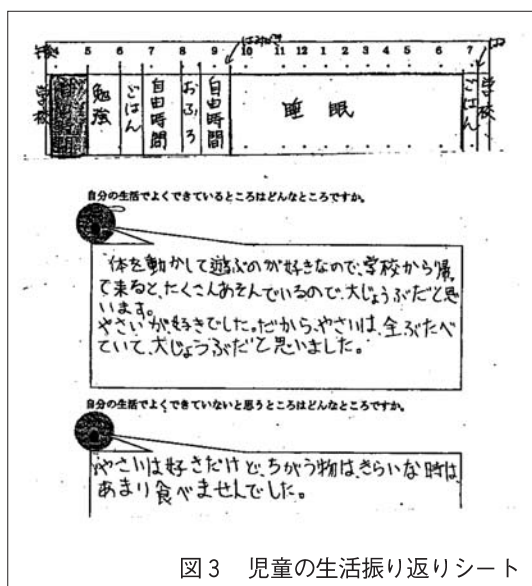 午後4 5 6 7 8 9 10 11 12 1 2 3 4 5 6 7
はみがき
学校
勉強
ごはん
自由時間
おふろ
自由時間
睡眠
ごはん
学校
自分の生活でよくできているところはどんなところですか。
体を動かして遊ぶのが好きなので、学校から帰っ
て来ると、たくさんあそんでいるので、大じょうぶだと思
います。
やさいが、好きでした。だから、やさいは、全ぶたべ
ていて、大じょうぶだと思いました。
自分の生活でよくできていないと思うところはどんなところですか。
やさいは好きだけど、ちがう物は、きらいな時は、
あまり食べませんでした。
図3 児童の生活振り返りシート